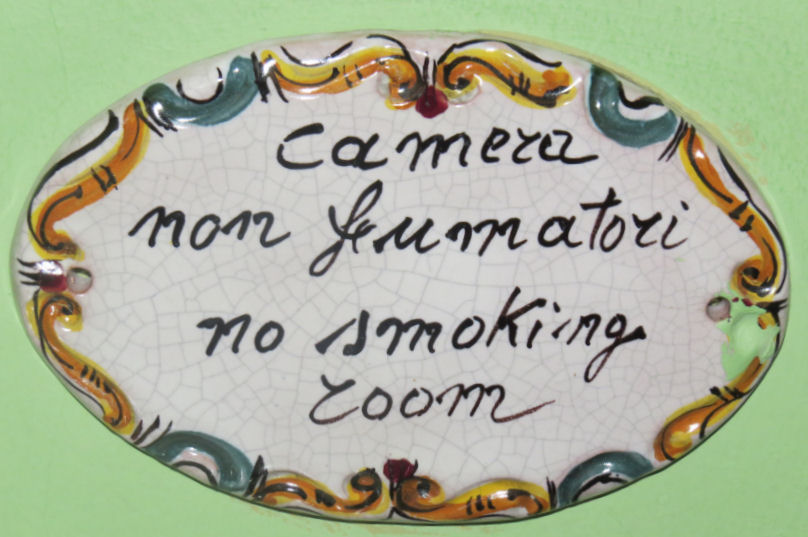 camera
non fumatori
no smoking
room